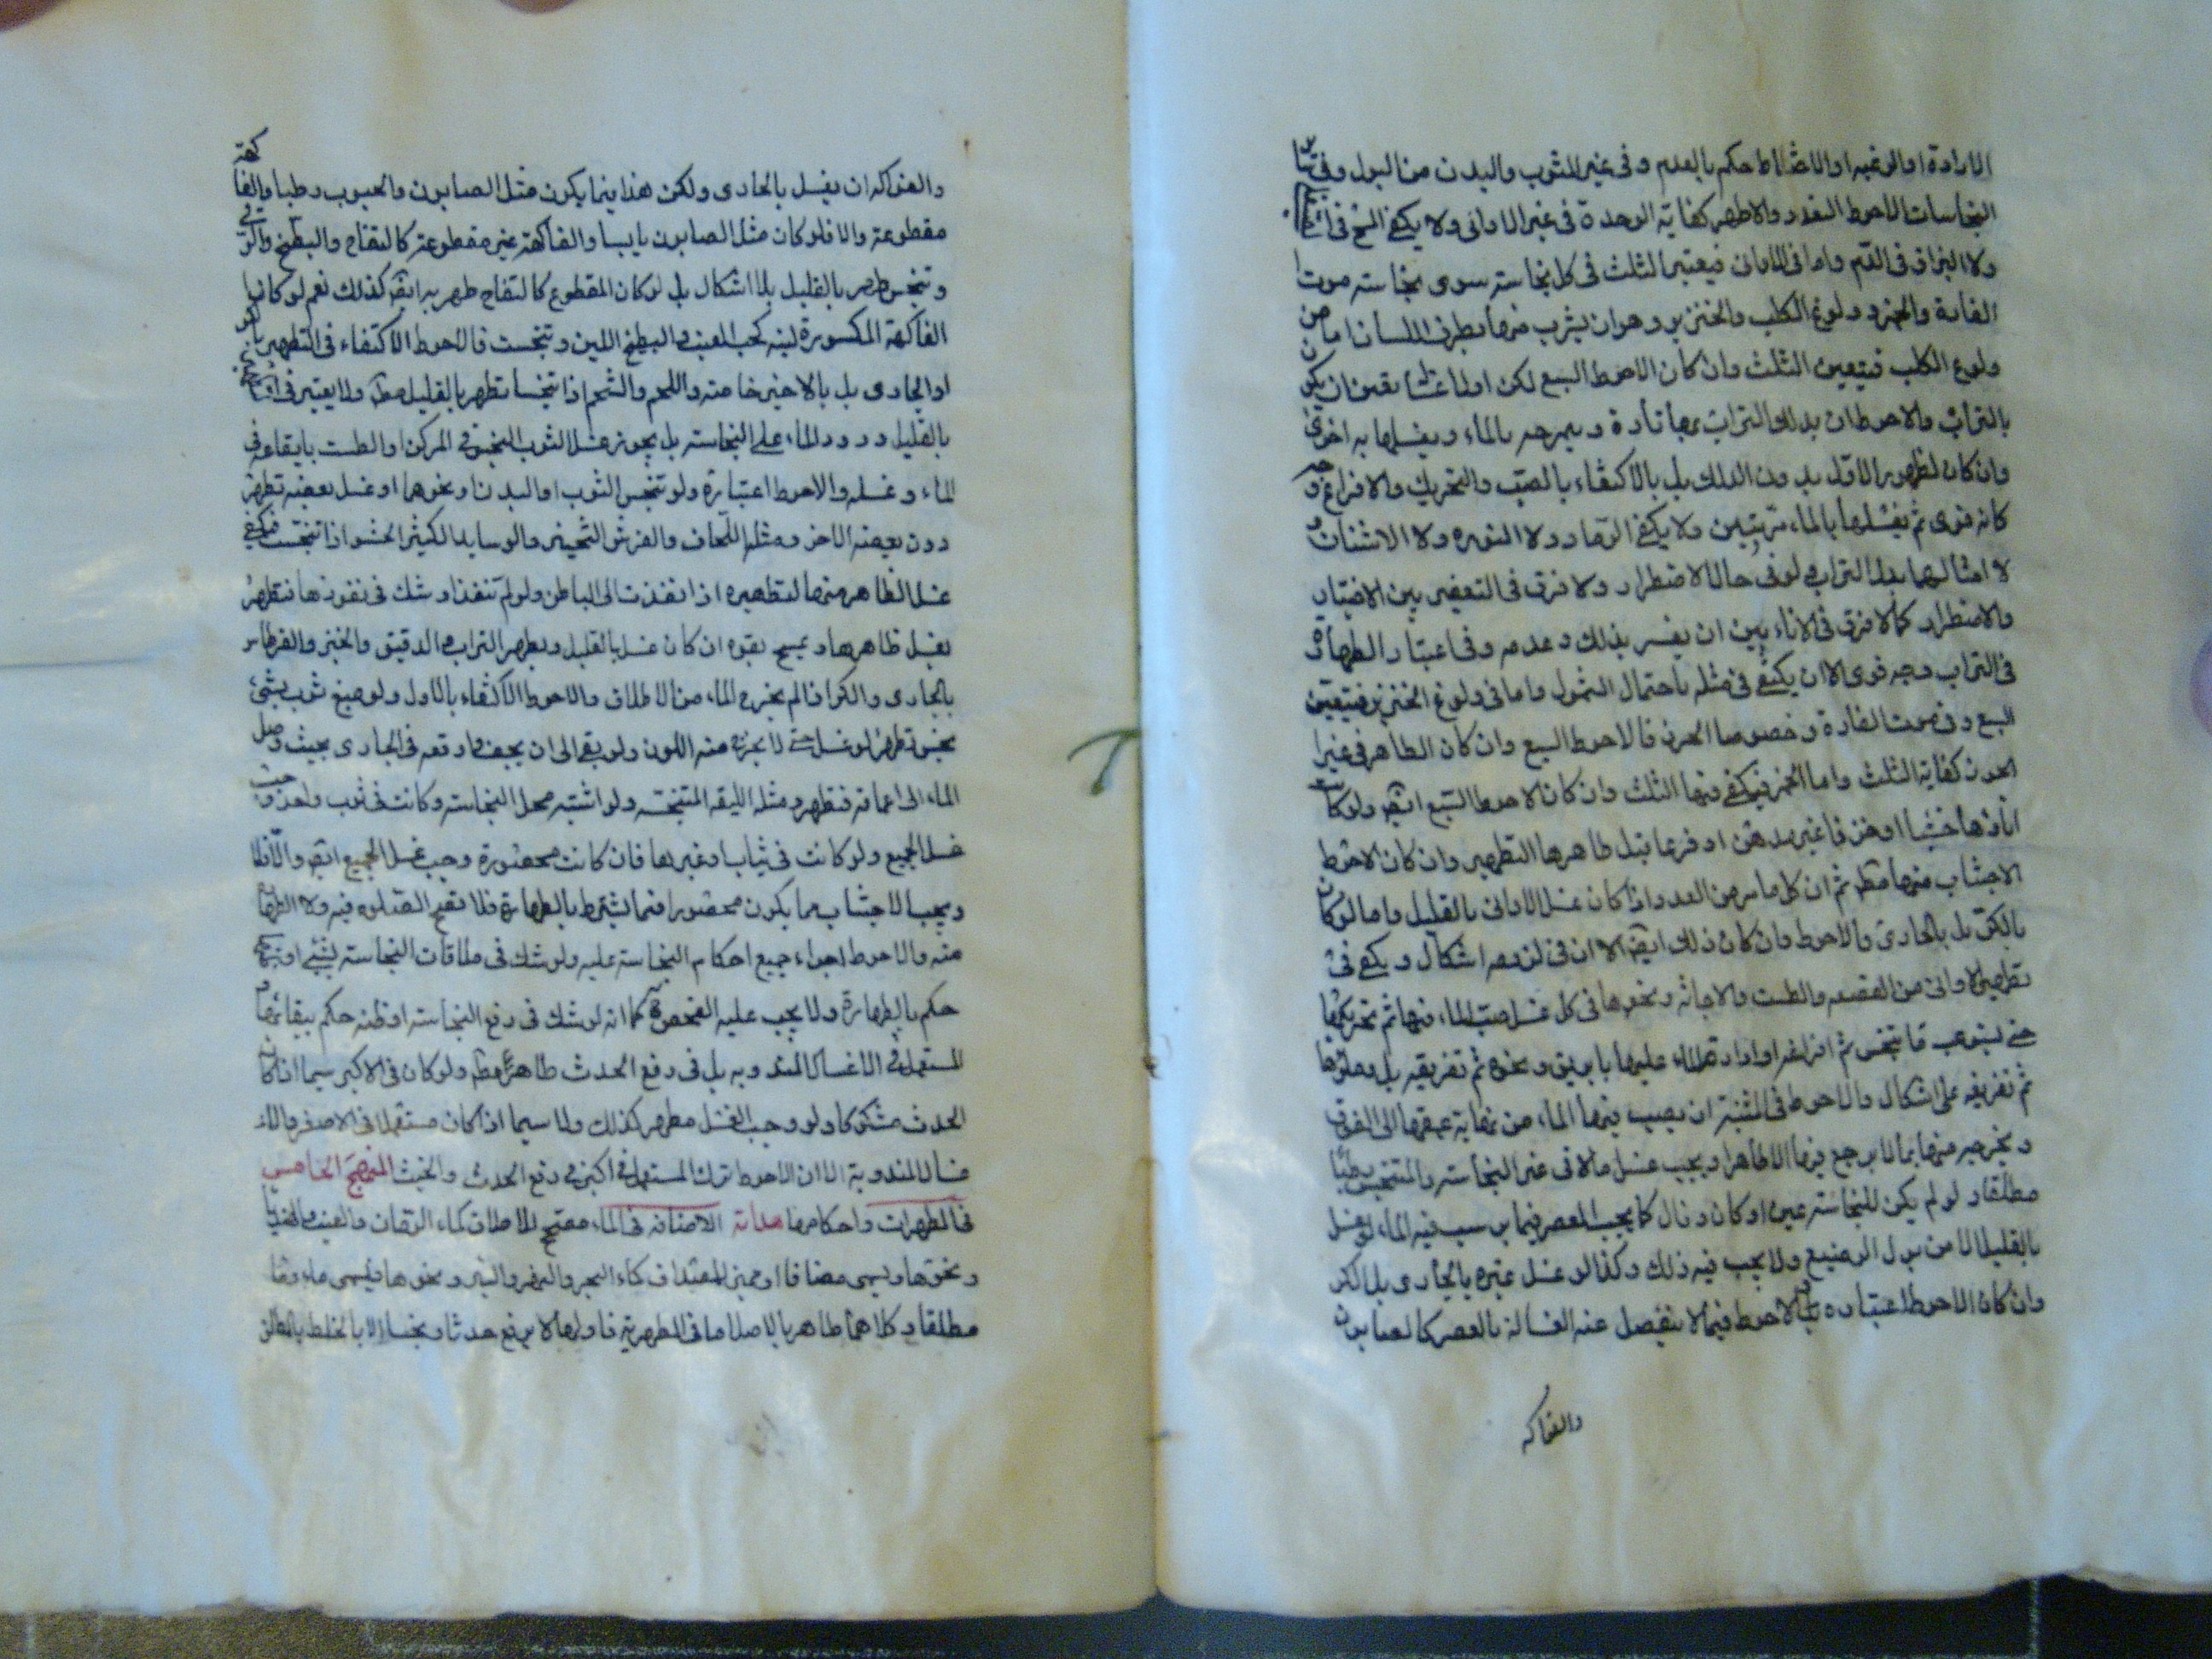 الارادة او الرغبة او الاختلاط حكم بالعدم وفى غير الثوب والبدن من البول وفى سا
النجاسات الاحوط التعدد والاظهر كفاية الوحدة فى غير الاوانى ولا يكفى المسح فى
ولا البزاق فى الفم واما فى الاوانى فيعتبر الثلث فى كل نجاسته سوى نجاسته موت
الفارة والخمر و ولوغ الكلب والخنزير وهو ان يشرب منها بطرف اللسان اما من
ولوغ الكلب فيتعين الثلث وان كان الاحوط السبع لكن اولها يتعين ان يكون
بالتراب والاحوط ان يدلك التراب بها تارة ويمزجه بالماء ويغسلها به اخرى
وان كان لظهور الاول بدون الدلك بل بالاكتفاء بالصب والتحريك والافراغ وجه
كانه قوى ثم يغسلها بالماء مرتين ولا يكفى الرماد ولا النوره ولا الاشنان و
لا امثالها بدل التراب ولو فى حال الاضطرار ولا فرق فى التعفير بين الاختيار
والاضطرار كما لا فرق فى الاناء بين ان يفسر بذلك وعدمه وفى اعتبار الطهارة
فى التراب وجه قوى الا ان يكتفى فى مثله باحتمال الشمول واما فى ولوغ الخنزير فيتعين
السبع وفى موت الفارة وخصوصا الجرذ فالاحوط السبع وان كان الظاهر فى غير
الجرذ كفاية الثلث واما الخمر فيكفى فيها الثلث وان كان الاحوط السبع ايضا ولو كانت
اناؤها خشبا او خزفا غير مدهن او قرعا قبل ظاهرها التطهير وان كان الاحوط
الاجتناب منها مطلقا ثم ان كل ما مر من العدد اذا كان غسل الاوانى بالقليل واما لو كان
بالكر بل بالجارى والاحوط وان كان ذلك ايضا الا ان فى لزومه اشكال ويكفى فى
تطهير الاوانى من القصعه والطست والاجانه ونحوها فى كل غسل صب الماء فيها ثم تحريكها
حتى يستوعب ما تنجس ثم افراغه او ادارة الماء عليها بابريق ونحوه ثم تفريقه بل وملؤها
ثم تفريغه على اشكال والاحوط فى المثبتة ان يصيب فيها الماء من نهاية عمقها الى الفوق
ويخرجه منها بما لا يرجع فيها الا طاهرا ويجب غسل ملاقى غير النجاسته والمتنجس رطبا
مطلقا ولو لم يكن للنجاسته عين او كان وزال كما يجب العصر فيما يرسب فيه الماء لو غسل
بالقليل الا من بول الرضيع ولا يجب فيه ذلك وكذا لو غسل غيره بالجارى بل الكر
وان كان الاحوط اعتباره بل الاحوط فيما لا ينفصل عنه الغسالة بالعصر كالصابون
والفواكه
والفواكه ان يغسل بالجارى ولكن هذا فيما يكون مثل الصابون والحبوب رطبا والفاكهة
مقطوعة والا فلو كان مثل الصابون يابسا والفاكهة غير مقطوعة كالتفاح والبطيخ
وتنجس طهر بالقليل بلا اشكال بل لو كان المقطوع كالتفاح طهر به ايضا كذلك نعم لو كان
الفاكهة المكسورة لينه كحب العنب والبطيخ اللين وتنجست فالاحوط الاكتفاء فى التطهير
او الجارى بل بالاخير خاصته واللحم والشحم اذا تنجسا تطهر بالقليل مطلقا ولا يعتبر فى
بالقليل ورود الماء على النجاسته بل يجوز غسل الثوب النجس فى المركن او الطست بايقاعه فى
الماء وغسله والاحوط اعتباره ولو تنجس الثوب او البدن او نحوهما او غسل بعضه تطهر
دون بعضه الاخر ومثله اللحاف والفرش الثخين والوسايد الكثير الحشو اذا تنجست فيكفى
غسل الظاهر منها لتطهيره اذا نفذت الى الباطن ولو لم تنفذ او شك فى نفوذها فتطهر
بغسل ظاهرها ويمسح بقوه ان كان غسل بالقليل ويطهر التراب والدقيق والخبز والقرطاس
بالجارى والكر اذا لم يخرج الماء من الاطلاق والاحوط الاكتفاء بالاول ولو صبغ ثوب بشئ
نجس تطهر لو غسل حتى لا يخرج منه اللون ولو بقى الى ان يجف او وقعه فى الجارى بحيث وصل
الماء الى اعماقه فتطهر ومثله الليقه المتنجسة ولو اشتبه محل النجاسته وكانت فى ثوب واحد وجب
غسل الجميع ولو كانت فى ثياب او غيرها فان كانت محصورة وجب غسل الجميع ايضا والا فلا
ويجب الاجتناب مما يكون محصورا فيما يشترط بالطهارة فلا تصح الصلوه فيه ولا الطهارة
منه والاحوط اجراء جميع احكام النجاسته عليه ولو شك فى ملاقات النجاسته لشئ او
حكم بالطهارة ولا يجب عليه الفحص كما انه لو شك فى رفع النجاسته او ظنه حكم ببقائها و
المستعمل فى الاغسال المندوبه بل فى رفع الحدث طاهر مطلقا ولو كان فى الاكبر سيما اذا كان
الحدث مشكوكا ولو وجب الغسل مطهر كذلك ولا سيما اذا كان مستعملا فى الاصغر والا
غسال المندوبة الا ان الاحوط ترك المستعمل فى اكبر فى رفع الحدث والخبث المنهج الخامس
فى المطهرات واحكامها هداية الاضافه فى الماء مصحح للاطلاق كماء الرمان والعنب والهندبا
ونحوها ويسمى مضافا او مميز للمصداق كماء البحر والنهر والبئر ونحوها ويسمى ماء و
مطلقا وكلاهما طاهر بالاصل اما فى المطهرية فاولهما لا يرفع حدثا ونجسا الا بالخلط بالمطلق